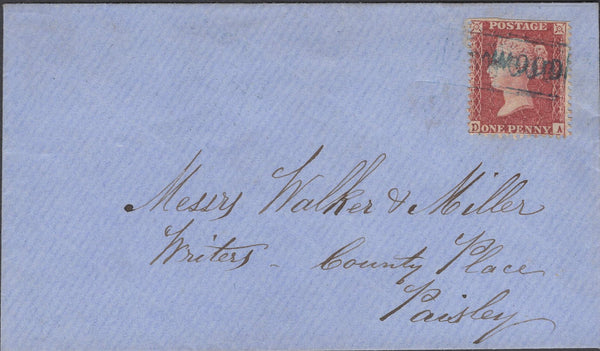 POSTAGE
D ONE PENNY A
Messrs Walker & Miller
Writers - County Place
Paisley